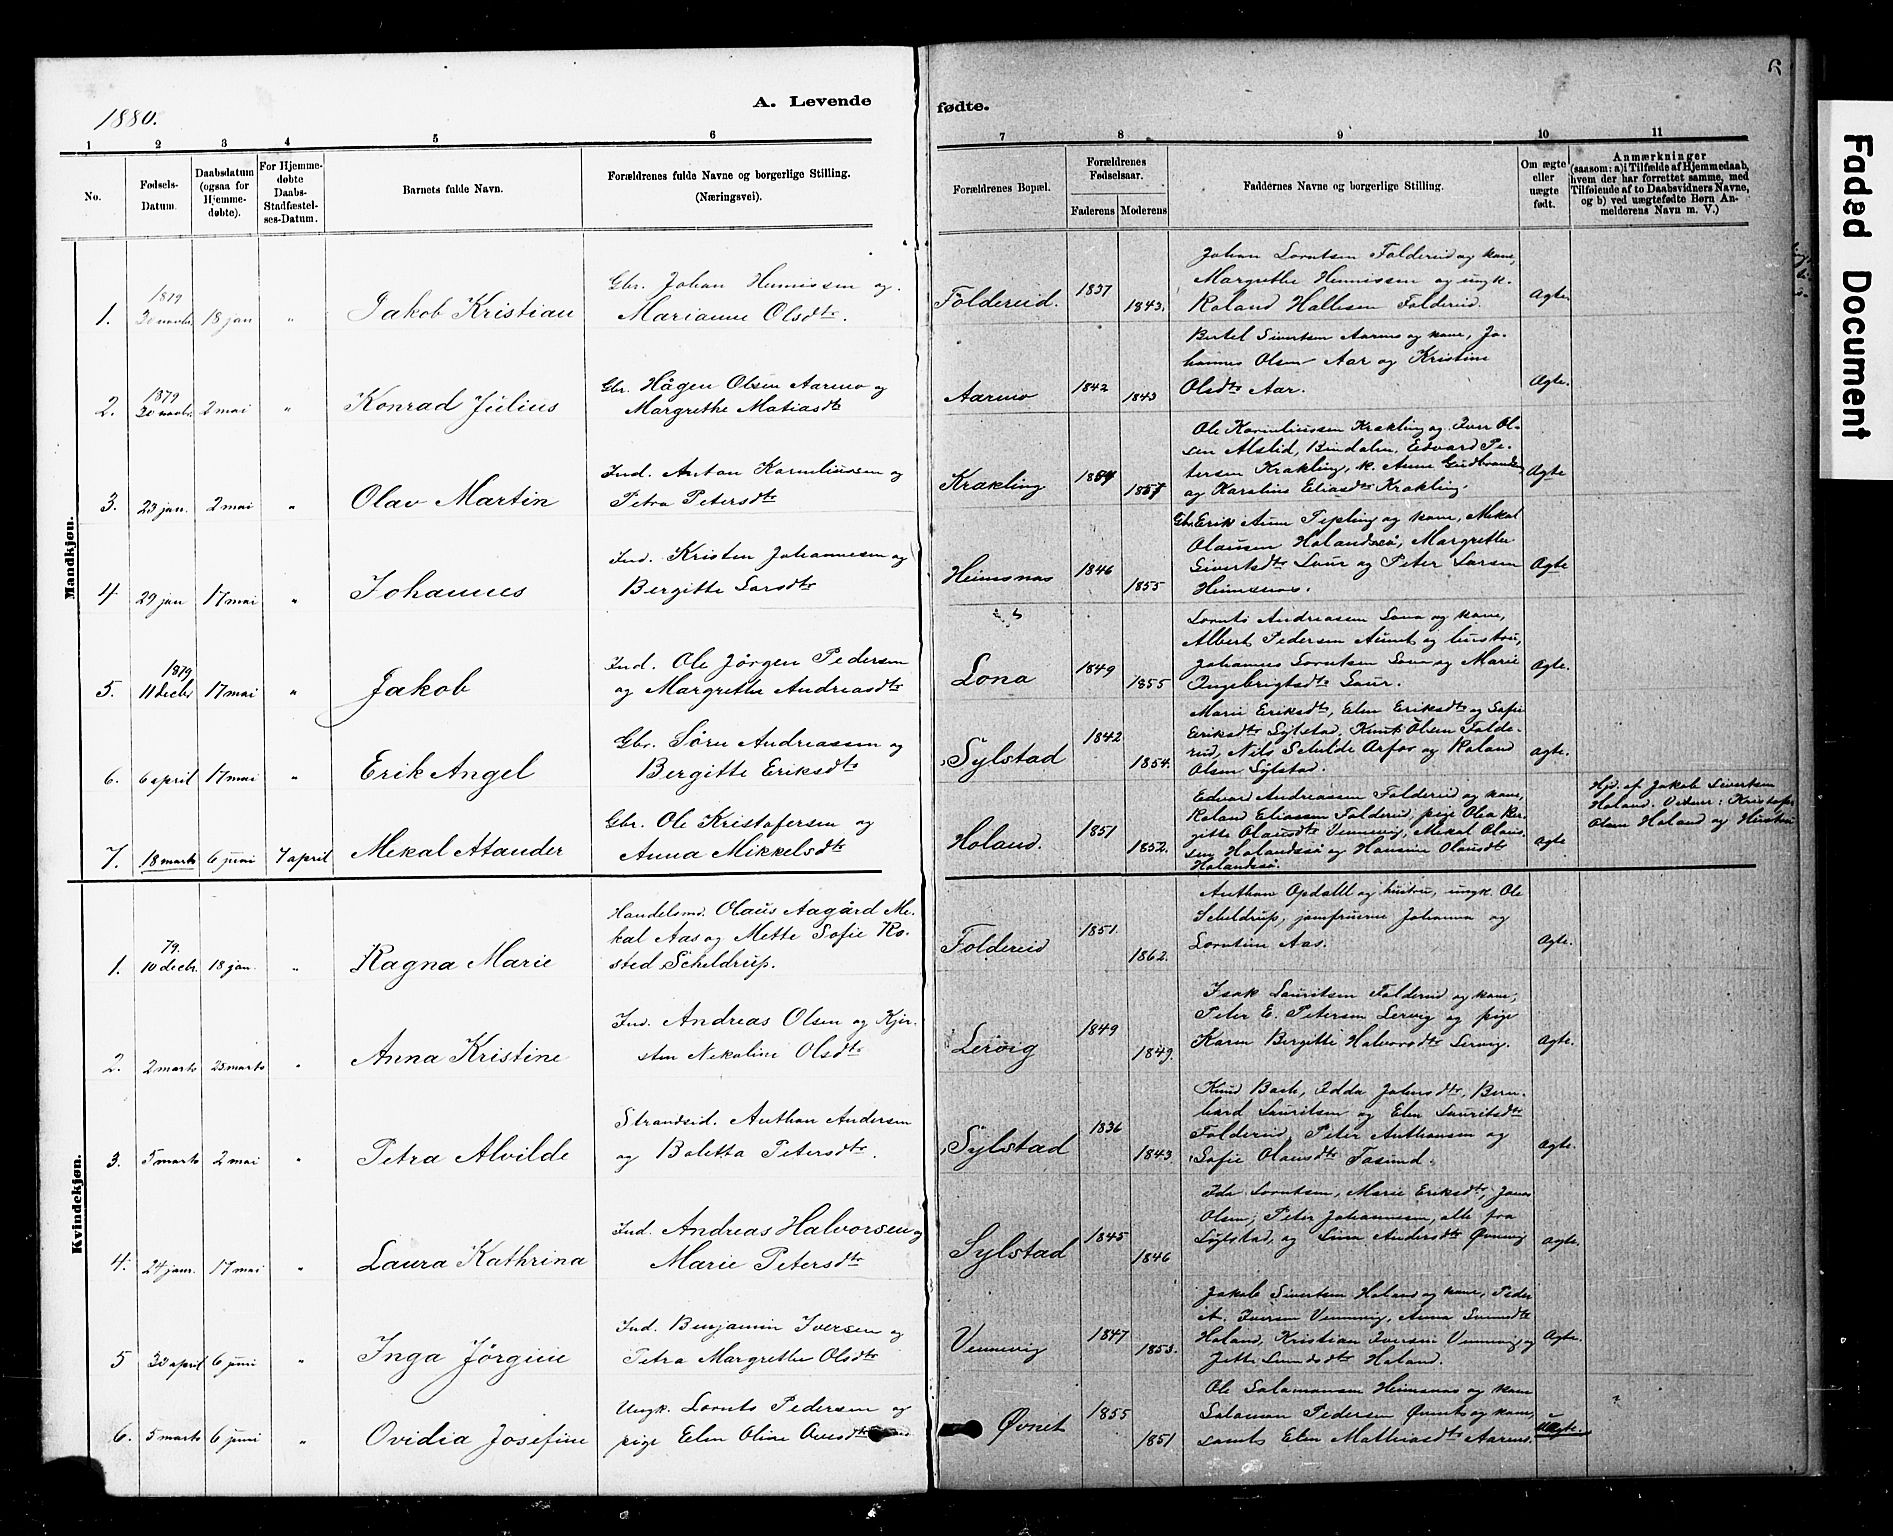 1880.
A. Levende
fødte.
Faded Document
1 2 3 4 5 6 7 8 9 10 11
No.
Fødsels-
Datum.
Daabsdatum
(ogsaa for
Hjemme-
døbte).
For Hjemme-
døbte
Daabs-
Stadfæstel-
ses-Datum.
Barnets fulde Navn.
Forældrenes fulde Navne og borgerlige Stilling.
(Næringsvei).
Forældrenes Bopæl.
Forældrenes
Fødselsaar.
Faderens Moderens
Faddernes Navne og borgerlige Stilling.
Om ægte
eller
uægte
født.
Anmærkninger
(saasom: a) i Tilfælde af Hjemmedaab,
hvem der har forrettet samme, med
Tilføiende af to Daabsvidners Navne,
og b) ved uægtefødte Børn An-
melderens Navn m. V.)
Mandkjøn.
1879
1. 30 novbr. 18 jan " Jakob Kristian
Gbr. Johan Hennissen og
Marianne Olsdtr.
Foldereid. 1837 1843.
Johan Lorntsen Foldereid og kone,
Margrethe Hennissen og ungk.
Roland Hallesen Foldereid.
Ægte.
1879
2. 30 novbr. 2 mai " Konrad Julius
Gbr. Hågen Olsen Aarmo og
Margrethe Matiasdtr
Aarmo 1842 1843
Bertel Sivertsen Aarmo og kone, Jo-
hannes Olsen Aar og Kristine
Olsdtr Aar.
Ægte.
3. 23 jan. 2 mai " Olav Martin
Ind. Anton Korneliussen og
Petra Petersdtr
Krakling 1857
Ole Korneliussen Krakling og Iver Ol-
sen Alslid, Bindalen, Edvard Pe-
tersen Krakling, k. Anne Gudbrandsen
og Karolius Eliasdtr Krakling.
Ægte
4. 29 jan 17 mai " Johannes
Ind. Kristen Johannesen og
Bergitte Larsdtr
Heimsnæs 1846 1855
Gbr. Erik Aune Tepling og kone, Mekal
Olausen Holandsøi, Margrethe
Sivertsdtr Saur og Peter Larsen
Heimsnæs.
Ægte
1879
5. 11 decbr 17 mai " Jakob
Ind. Ole Jørgen Pedersen
og Margrethe Andreasdtr
Lona 1849 1855
Lornts Andreassen Lona og kone,
Albert Pedersen Aunet og hustru,
Johannes Lorntsen Lona og Marie
Ingebrigtsdtr Saur.
Ægte.
6. 6 april 17 mai " Erik Angel
Gbr. Søren Andreassen og
Bergitte Eriksdtr
Sylstad 1842 1854.
Marie Eriksdtr, Elen Eriksdtr og Sofie
Eriksdtr Sylstad, Knut Olsen Folde-
reid, Nils Schilde Arfor og Roland
Olsen Sylstad.
Ægte.
7. 18 marts 6 juni 7 april Mekal Atander
Gbr. Ole Kristofersen og
Anna Mikkelsdtr
Holand. 1851 1852.
Edvard Andreassen Foldereid og kone,
Roland Eliassen Foldereid, pige Olea Ber-
gitte Olausdtr Vennevig, Mekal Olaus-
sen Holandsøi og Hansine Olausdtr
Holandsøi.
Ægte
Hjd. af Jakob Sivertsen
Holand. Vidner: Kristofer
Olsen Holand og Hustru
Kvindekjøn.
79.
1. 10 decbr. 18 jan. " Ragna Marie
Handelsmd. Olaus Aagård Me-
kal Aas og Mette Sofie Ro-
sted Scheldrup.
Foldereid 1851. 1862.
Anthon Opdahl og hustru, ungk. Ole
Scheldrup, jomfruerne Johanna og
Lorntine Aas.
Ægte.
2. 2 marts 25 marts " Anna Kristine
Ind. Andreas Olsen og Kjer-
sten Nekoline Olsdtr
Lervig 1849 1849.
Isak Lauritsen Foldereid og kone,
Peter E. Petersen Lervig og pige
Karen Bergitte Halvorsdtr Lervig.
Ægte.
3. 5 marts 2 mai " Petra Alvilde
Strandsid. Anthon Andersen
og Boletta Petersdtr.
Sylstad 1836 1843
Knud Bach, Edda Johnsdtr, Bern-
hard Lauritsen og Elen Lauritsdtr
Foldereid, Peter Anthonsen og
Sofie Olausdtr Fosund.
Ægte.
4. 24 janr. 17 mai " Laura Kathrina
Ind. Andreas Halvorsen og
Marie Petersdtr
Sylstad 1845 1846
Ida Lorntsen, Marie Eriksdtr, Jonas
Olsen, Peter Johannesen, alle fra
Sylstad, og Lina Andersdtr Øvnevig
Ægte.
5 30 april 6 juni " Inga Jørgine
Ind. Benjamin Iversen og
Petra Margrethe Olsdtr
Vennevig 1847 1853.
Jakob Sivertsen Holand og kone, Peder
A. Iversen Vennevig, Anna Svendsdtr
Holand, Kristian Iversen Vennevig og
Jette Svendsdtr Holand.
Ægte.
6. 5 marts 6 juni " Ovidia Josefine
Ungk. Lornts Pedersen og
pige Elen Oline
Øvnet 1855 1851
Ole Salamonsen Heimsnæs og kone
Salamon Pedersen Øvnet og kone,
samt Elen Mathiasdtr Aarmo.
Uægte.